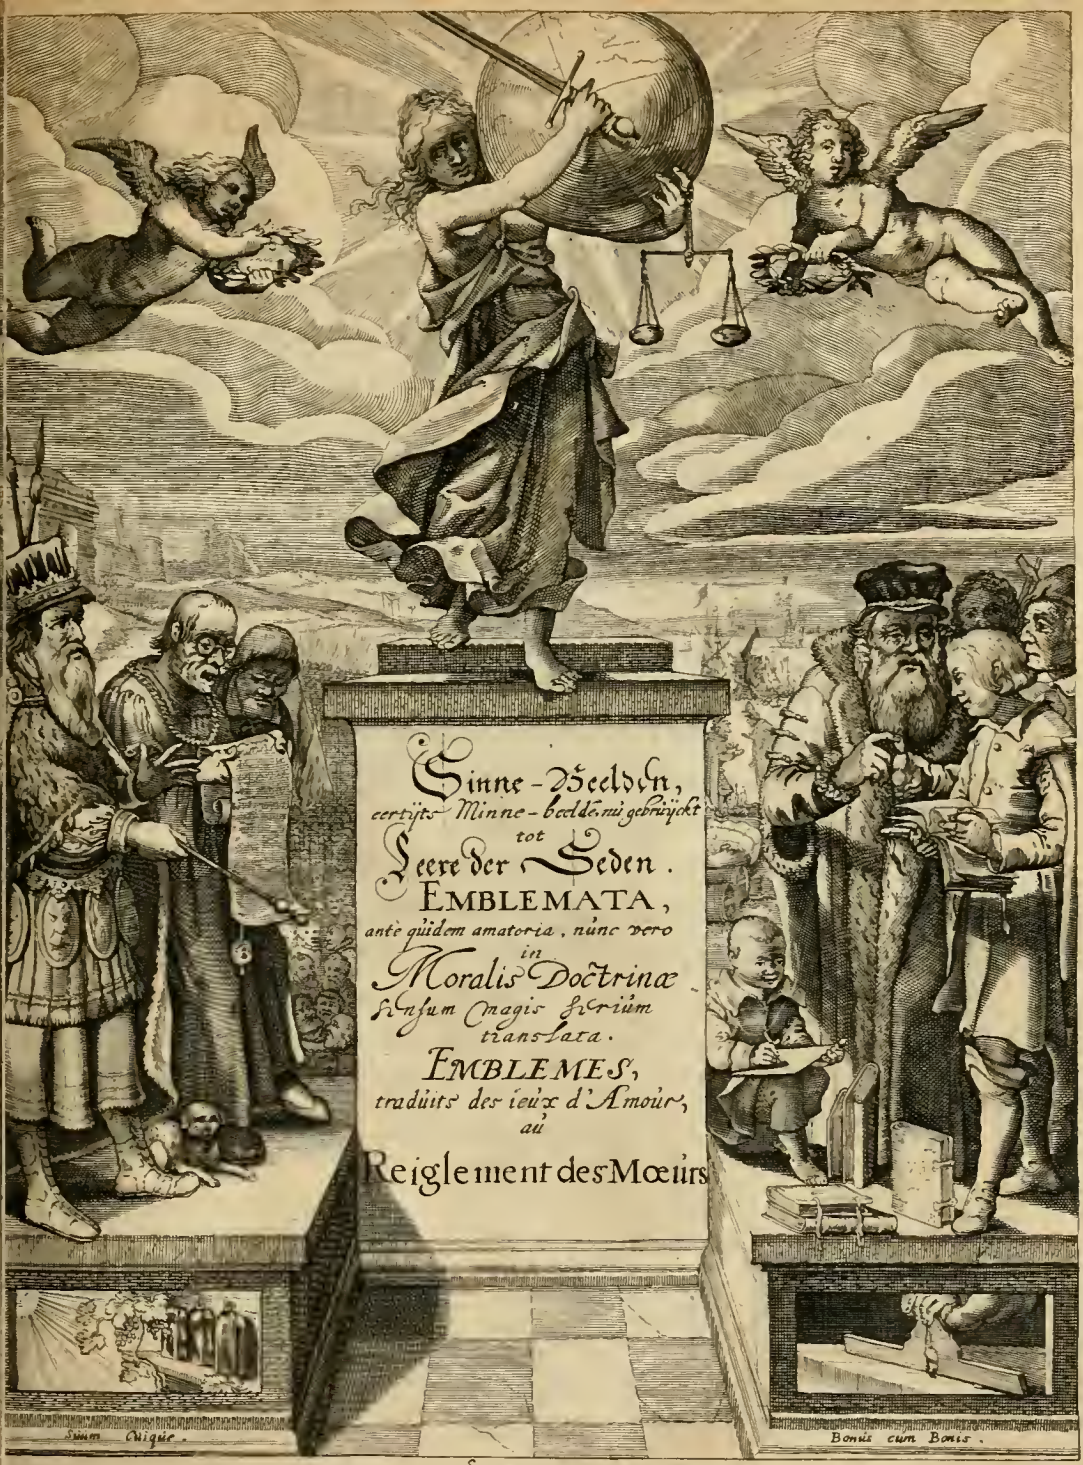 Sinne-Beelden,
eertijts Minne-beeldē, nu gebruÿckt
tot
Leere der Seden.
EMBLEMATA,
ante quidem amatoria, nunc vero
in
Moralis Doctrinæ
sensum magis serium
translata.
EMBLEMES,
traduits des ieux d'Amour,
au
Reiglement des Mœurs
Suum Cuique.
Bonus cum Bonis.